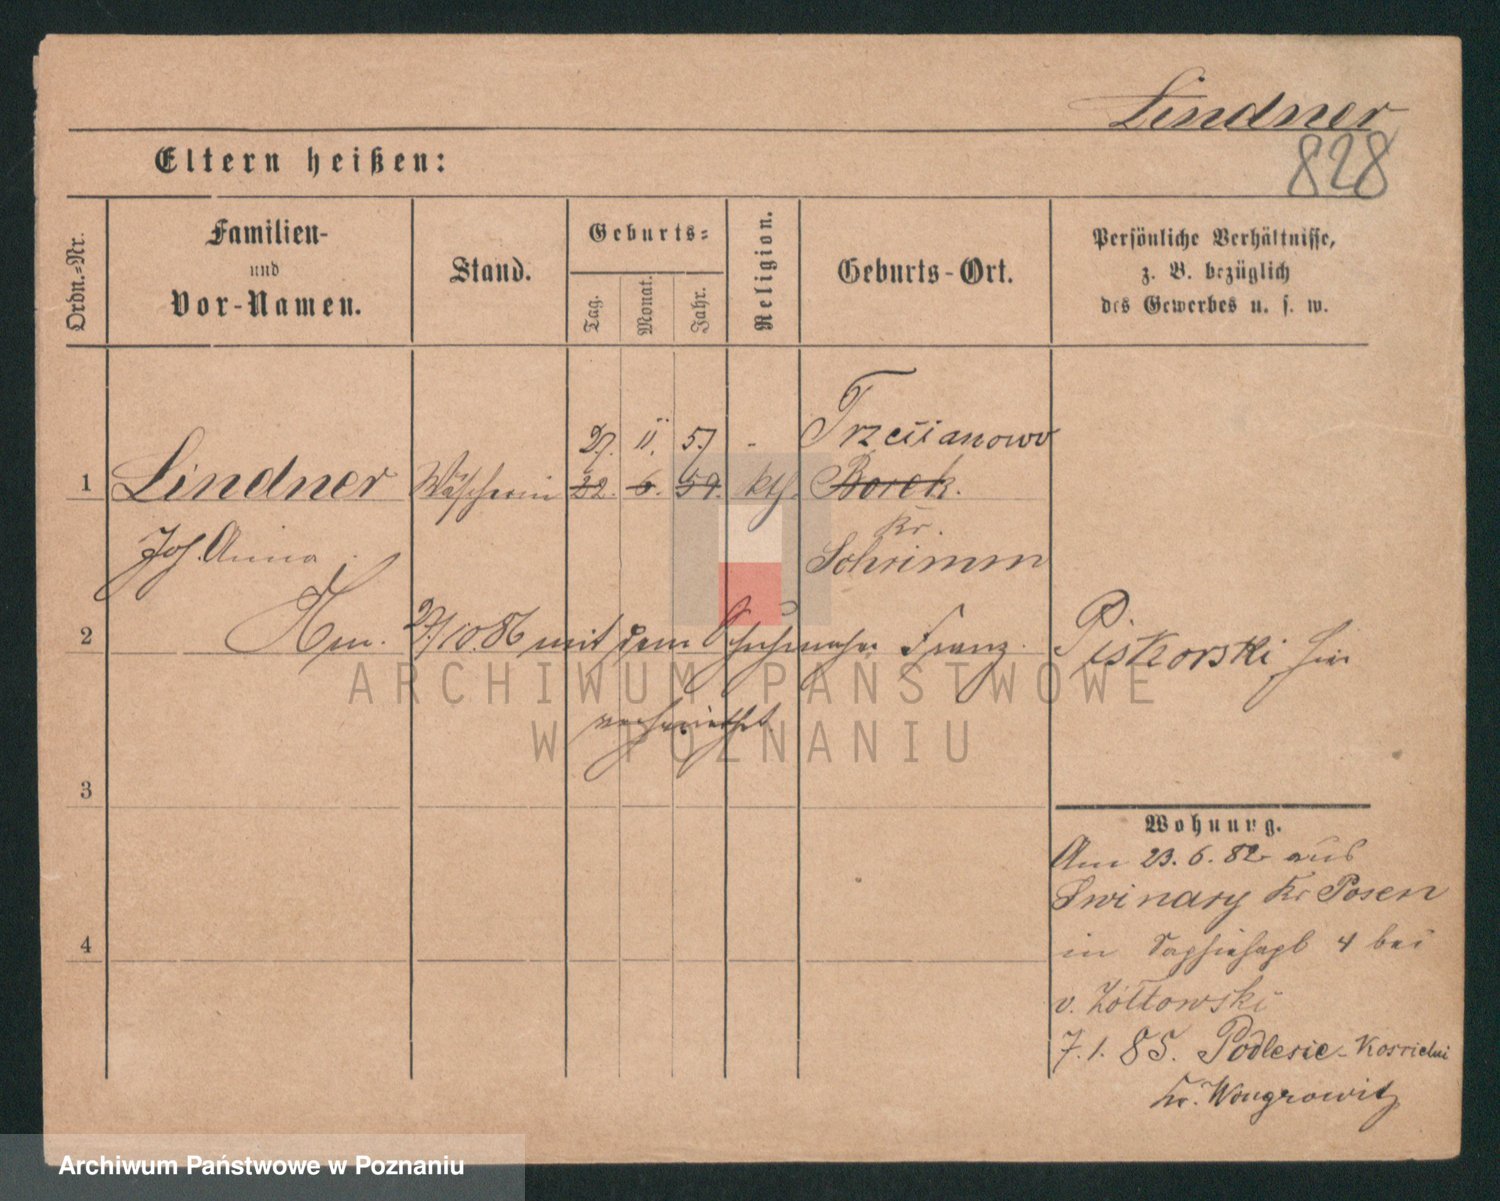 Lindner
828
Eltern heißen:
Ordn.-Nr.
Familien-
und
Vor-Namen.
Stand.
Geburts-
Tag.
Monat.
Jahr.
Religion.
Geburts-Ort.
Persönliche Verhältnisse,
z. B. bezüglich
des Gewerbes u. s. w.
27. 11. 57 - Trzcianowo
1 Lindner Wäscherin 22. 6. 59. kth. Borek.
Kr.
Joh. Anna Schrimm
2 27/10.86 mit dem Schuhmacher Franz Piskorski hier
verheirathet.
3
Wohnung.
Am 23.6.82 aus
Swinary Kr Posen
4
in 4 bei
v. Zóltowski
7.1.85. Podlesie-Koscielni
Kr. Wongrowitz
ARCHIWUM PAŃSTWOWE
W POZNANIU
Archiwum Państwowe w Poznaniu